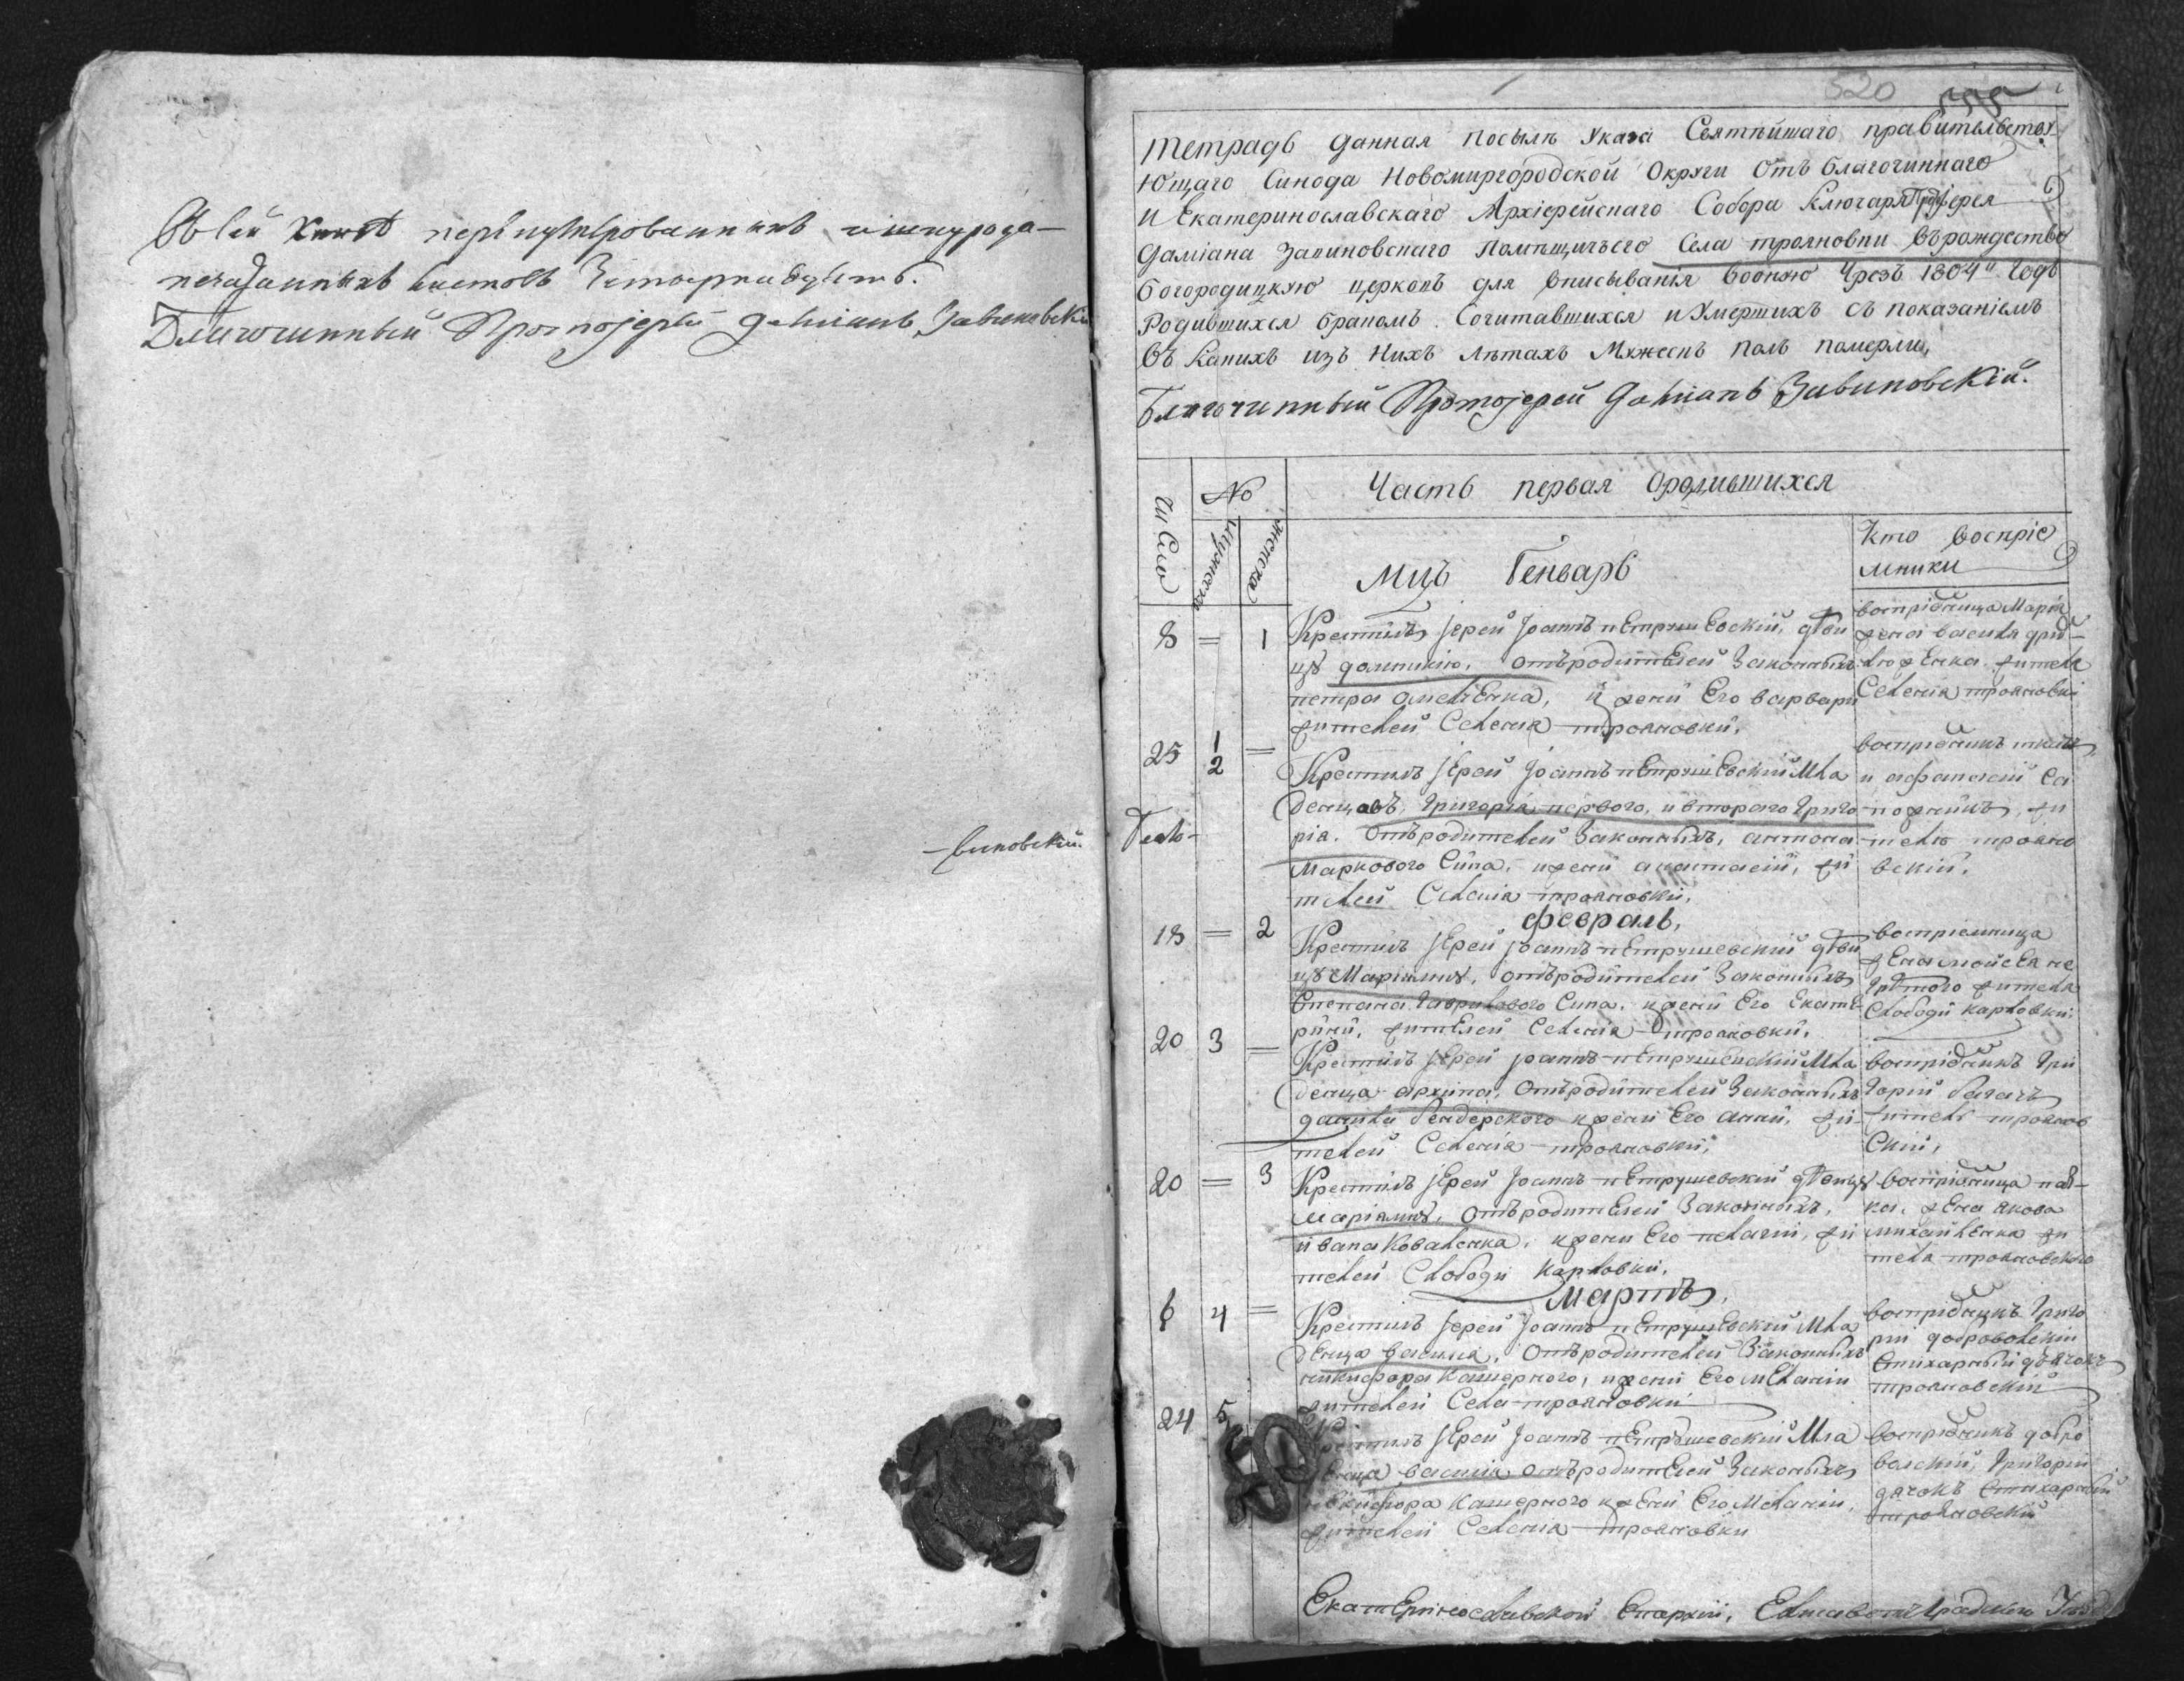 В сей книгѣ перенумерованныхъ и шнуроза-
печатанныхъ листовъ
Благочинный Протоіерей Даміанъ Завиновскій
-виновскій.
520
555
Тетрадь данная посылѣ Указа Святѣйшаго правительству-
ющаго Синода Новомиргородской Округи отъ благочиннаго
и Екатеринославскаго Архіерейскаго Собора Ключаря Протоіерея
Даміана Завиновскаго помѣщичьего села трояновки въ рождество
богородицкую церковь для вписыванія въ оную Чрезъ 1804й Годъ
Родившихся бракомъ Сочитавшихся и Умершихъ съ показаніемъ
въ какихъ изъ нихъ лѣтахъ Мужескъ полъ померли,
Благочинный Протоіерей Даміанъ Завиновскій.
Число
№
мужеска
женска
Часть первая о родившихся
Мцъ Генварь
Кто воспріе
мники
8 = 1
Крестилъ Іерей Іоаннъ петрушевскій, дѣви
цу домникію, отъ родителей законныхъ
петра омелченка, и жени Его варвари
жителей Селенія трояновки,
воспріемница Марія
жена василя
женка жителя
Селенія трояновки
25 1 2 =
Крестилъ Іерей Іоаннъ петрушевскій Мла
денцовъ Григорія первого, и второго Григо
рія. отъ родителей законныхъ, антона
Маркового Сина, и жени анастасіи, жи
телей Селенія трояновки,
воспріемникъ
и афанасій са
пожникъ, жи
тель трояно
вскій,
февраль,
18 = 2
Крестилъ Іерей Іоаннъ петрушевскій дѣви
цу Маріамну, отъ родителей законныхъ
Степана Гаврилового Сина, и жени Его Екате-
рини, жителей Селенія трояновки,
воспріемница
жена мойсея
жителя
Слободи карловки
20 3 =
Крестилъ Іерей Іоаннъ петрушевскій Мла
денца архипа, отъ родителей законныхъ
данила бендерского и жени Его анни, жи-
телей Селенія трояновки,
воспріемникъ Гри
горій
житель троянов
скій,
20 = 3
Крестилъ Іерей Іоаннъ петрушевскій дѣвицу
маріямну, отъ родителей законныхъ,
ивана Коваленка, и жени Его пелагіи, жи
телей Слободи Карловки,
воспріемница пав-
ка, жена якова
михайленка жи
теля трояновского
мартъ,
6 4 =
Крестилъ Іерей Іоаннъ петрушевскій Мла
денца василія, отъ родителей законныхъ
никифора Кашерного, и жени Его меланіи
жителей Села трояновки
воспріемникъ Григо
рій доброволскій
стихарный дячокъ
трояновскій
24 5
Крестилъ Іерей Іоаннъ петрушевскій Мла
денца василія отъ родителей законныхъ
никифора Кашерного и жени Его Меланіи,
жителей Селенія трояновки
воспріемникъ добро
волскій, Григорій
дячокъ стихарный
трояновскій
Екатеринославской Епархіи, Елисаветъградского